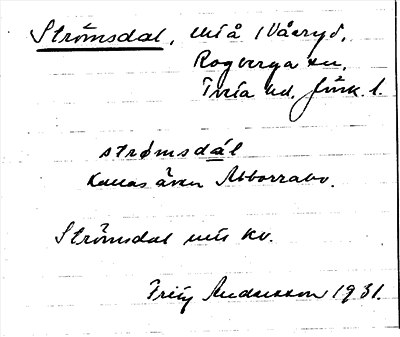 Strömsdal, utj å 1 Våeryd,
Rogberga sn,
Tveta hd. Jönk. l.
strømsdál
Kallas även Abborrabo.
Strömsdal utj kv.
Fritz Andersson 1931.